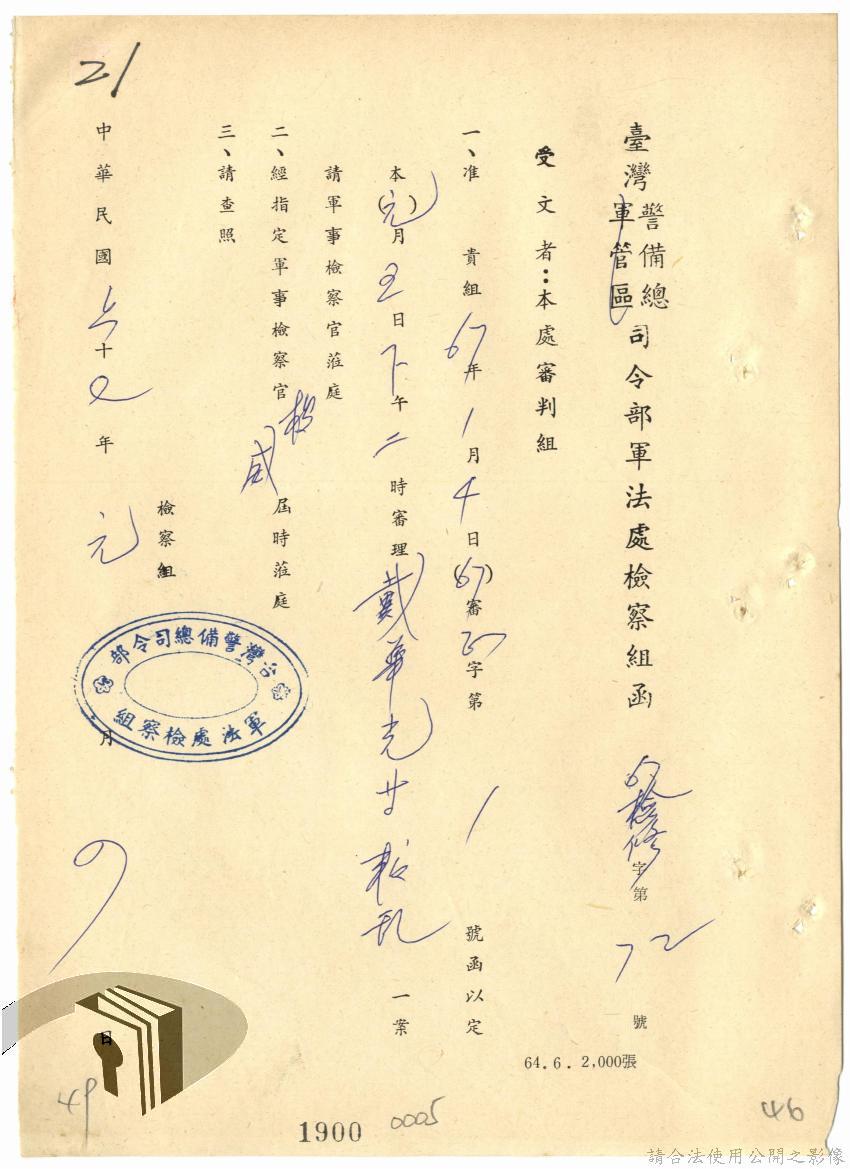 臺灣警備總軍管區司令部軍法處檢察組函
67檢修字第72號
受文者：本處審判組
一、准貴組67年1月4日(67)審正字第1號函以定
本(元)月五日下午二時審理戴華光等叛亂一案
請軍事檢察官蒞庭
二、經指定軍事檢察官屆時蒞庭
三、請查照
檢察組
台灣警備總司令部
軍法處檢察組
中華民國六十七年元月日
64.6. 2,000張
21
49
1900
0005
46
請合法使用公開之影像